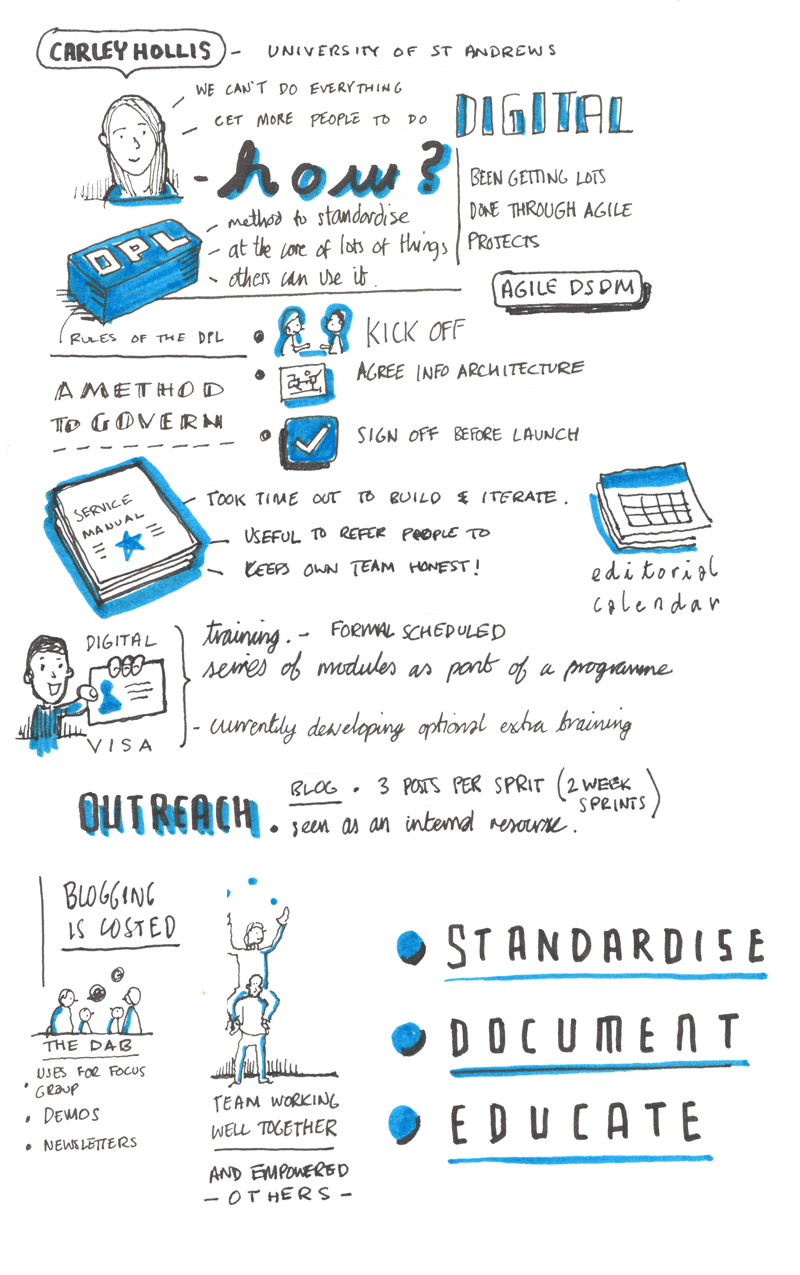 CARLEY HOLLIS - UNIVERSITY OF ST ANDREWS
- WE CAN'T DO EVERYTHING
- GET MORE PEOPLE TO DO DIGITAL
- how?
BEEN GETTING LOTS
DONE THROUGH AGILE
PROTECTS
DPL
- method to standardise
- at the core of lots of things
- others can use it.
AGILE DSDM
RULES OF THE DPL
A METHOD
TO GOVERN
• KICK OFF
• AGREE INFO ARCHITECTURE
• SIGN OFF BEFORE LAUNCH
SERVICE
MANUAL
- TOOK TIME OUT TO BUILD & ITERATE.
- USEFUL TO REFER PEOPLE TO
- KEEPS OWN TEAM HONEST!
editorial
calendar
DIGITAL
VISA
training. - FORMAL SCHEDULED
series of modules as part of a programme
- currently developing optional extra training
OUTREACH
BLOG • 3 POSTS PER SPRIT (2 WEEK
SPRINTS)
• seen as an internal resourse.
BLOGGING
IS COSTED
THE DAB
• USES FOR FOCUS
GROUP
• DEMOS
• NEWSLETTERS
TEAM WORKING
WELL TOGETHER
AND EMPOWERED
- OTHERS -
• STANDARDISE
• DOCUMENT
• EDUCATE